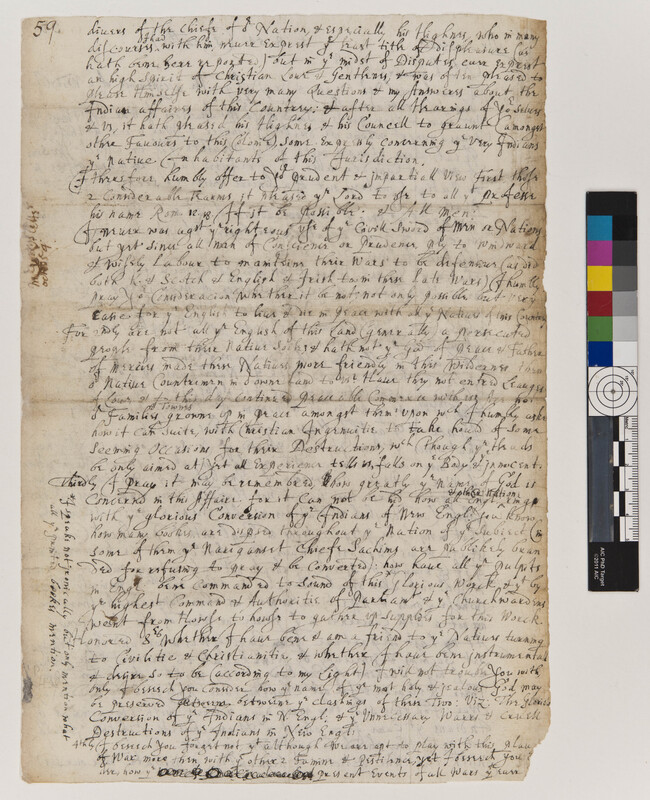 59.
divers of the Chiefe of yr Nation, & especially his Highnes, who in many
discourses I had with him, never Exprest ye least title of displeasure (as
hath bene here reported) but in ye midst of Disputes ever Exprest
an high Spirit of Christian Love & Gentlenes, & was often pleased to
please Himselfe with very many Questions & my Answeres about the
Indian affaires of this Countrey: & after all Hearings of yr Selves
& us, it hath pleased his Highnes & his Councell to graunt (amongst
other Favours to this Colonie) some Expresly concerning ye Very Indians
ye Native Inhabitants of this Jurisdiction.
I therefore humbly offer to yr prudent & impartiall View first these
2 Considerable termes it pleased ye Lord to use to all yt professe
his name Rom 12.18 If it be possible. & All Men:
I never was agst ye righteous use of ye Civill Sword of Men or Nations
but yet since all men of Conscience or Prudence ply to windward
& wisely Labour to maintaine their Wars to be defensive (as did
both K. & Scotch & English & Irish too in these Late Wars) I humbly
pray yr Consideration whether it be not not only possible but very
easie for ye English to live & die in peace with all ye Natives of this Countrey
For 2ndly are not all ye English of this Land (Generally) a persecuted
people from their Native Soile & hath not ye God of Peace & Father
of Mercies made these Natives more friendly in this Wildernes than
or Native Countrimen in our owne Land to us: Have they not entred Leagues
of Love & to this day continued peaceable Commerce with us: Are not
or Families growne up in peace amongst them upon wch I humbly aske
how it can suite with Christian Ingenuitie to take hould of some
seeming Occasions for their Destructions, wch (though ye Heads
be only aimed at) yet all Experience tells us, falls on ye Body & ye innocent.
Thirdly I pray it may be remembred how greatly ye name of God is
concernd in this Affaire. for it can not be hid how all England & other Nations ring
with ye glorious Conversion of ye Indians of New Engl: You know
how many bookes are dispersd throughout ye Nation of ye Subject (in
some of them ye Nariganset Chiefe Sachims are publickly bran
ded for refusing to pray & be converted): how have all ye Pulpits
in Engl: bene commanded to sound of this glorious Worck & yt by
ye highest Command & Authoritie of Parliamt & ye Churchwardens
went from howse to howse to gather up Supplies for this Worck.
Honored Srs Whether I have bene & am a friend to ye Natives turning
to Civilitie & Christianitie, & whether I have bene instrumentall
& desire so to be (according to my Light) I will not trouble you with
only I beseech you Consider how ye name of ye most holy & jealous God may
be preserved between ye clashings of these Two: Viz: The glorious
Conversion of ye Indians in N: Engl: & ye Unnecessary Warrs & Cruell
Destructions of ye Indians in New Engl:
4thly I beseech you forget not yt although we are apt to play with this plague
of War more then with ye other 2 Famine & Pestilence yet I beseech you
present Events of all Wars yt ever
I speake not ironically but only mention what
all ye printed bookes mention.